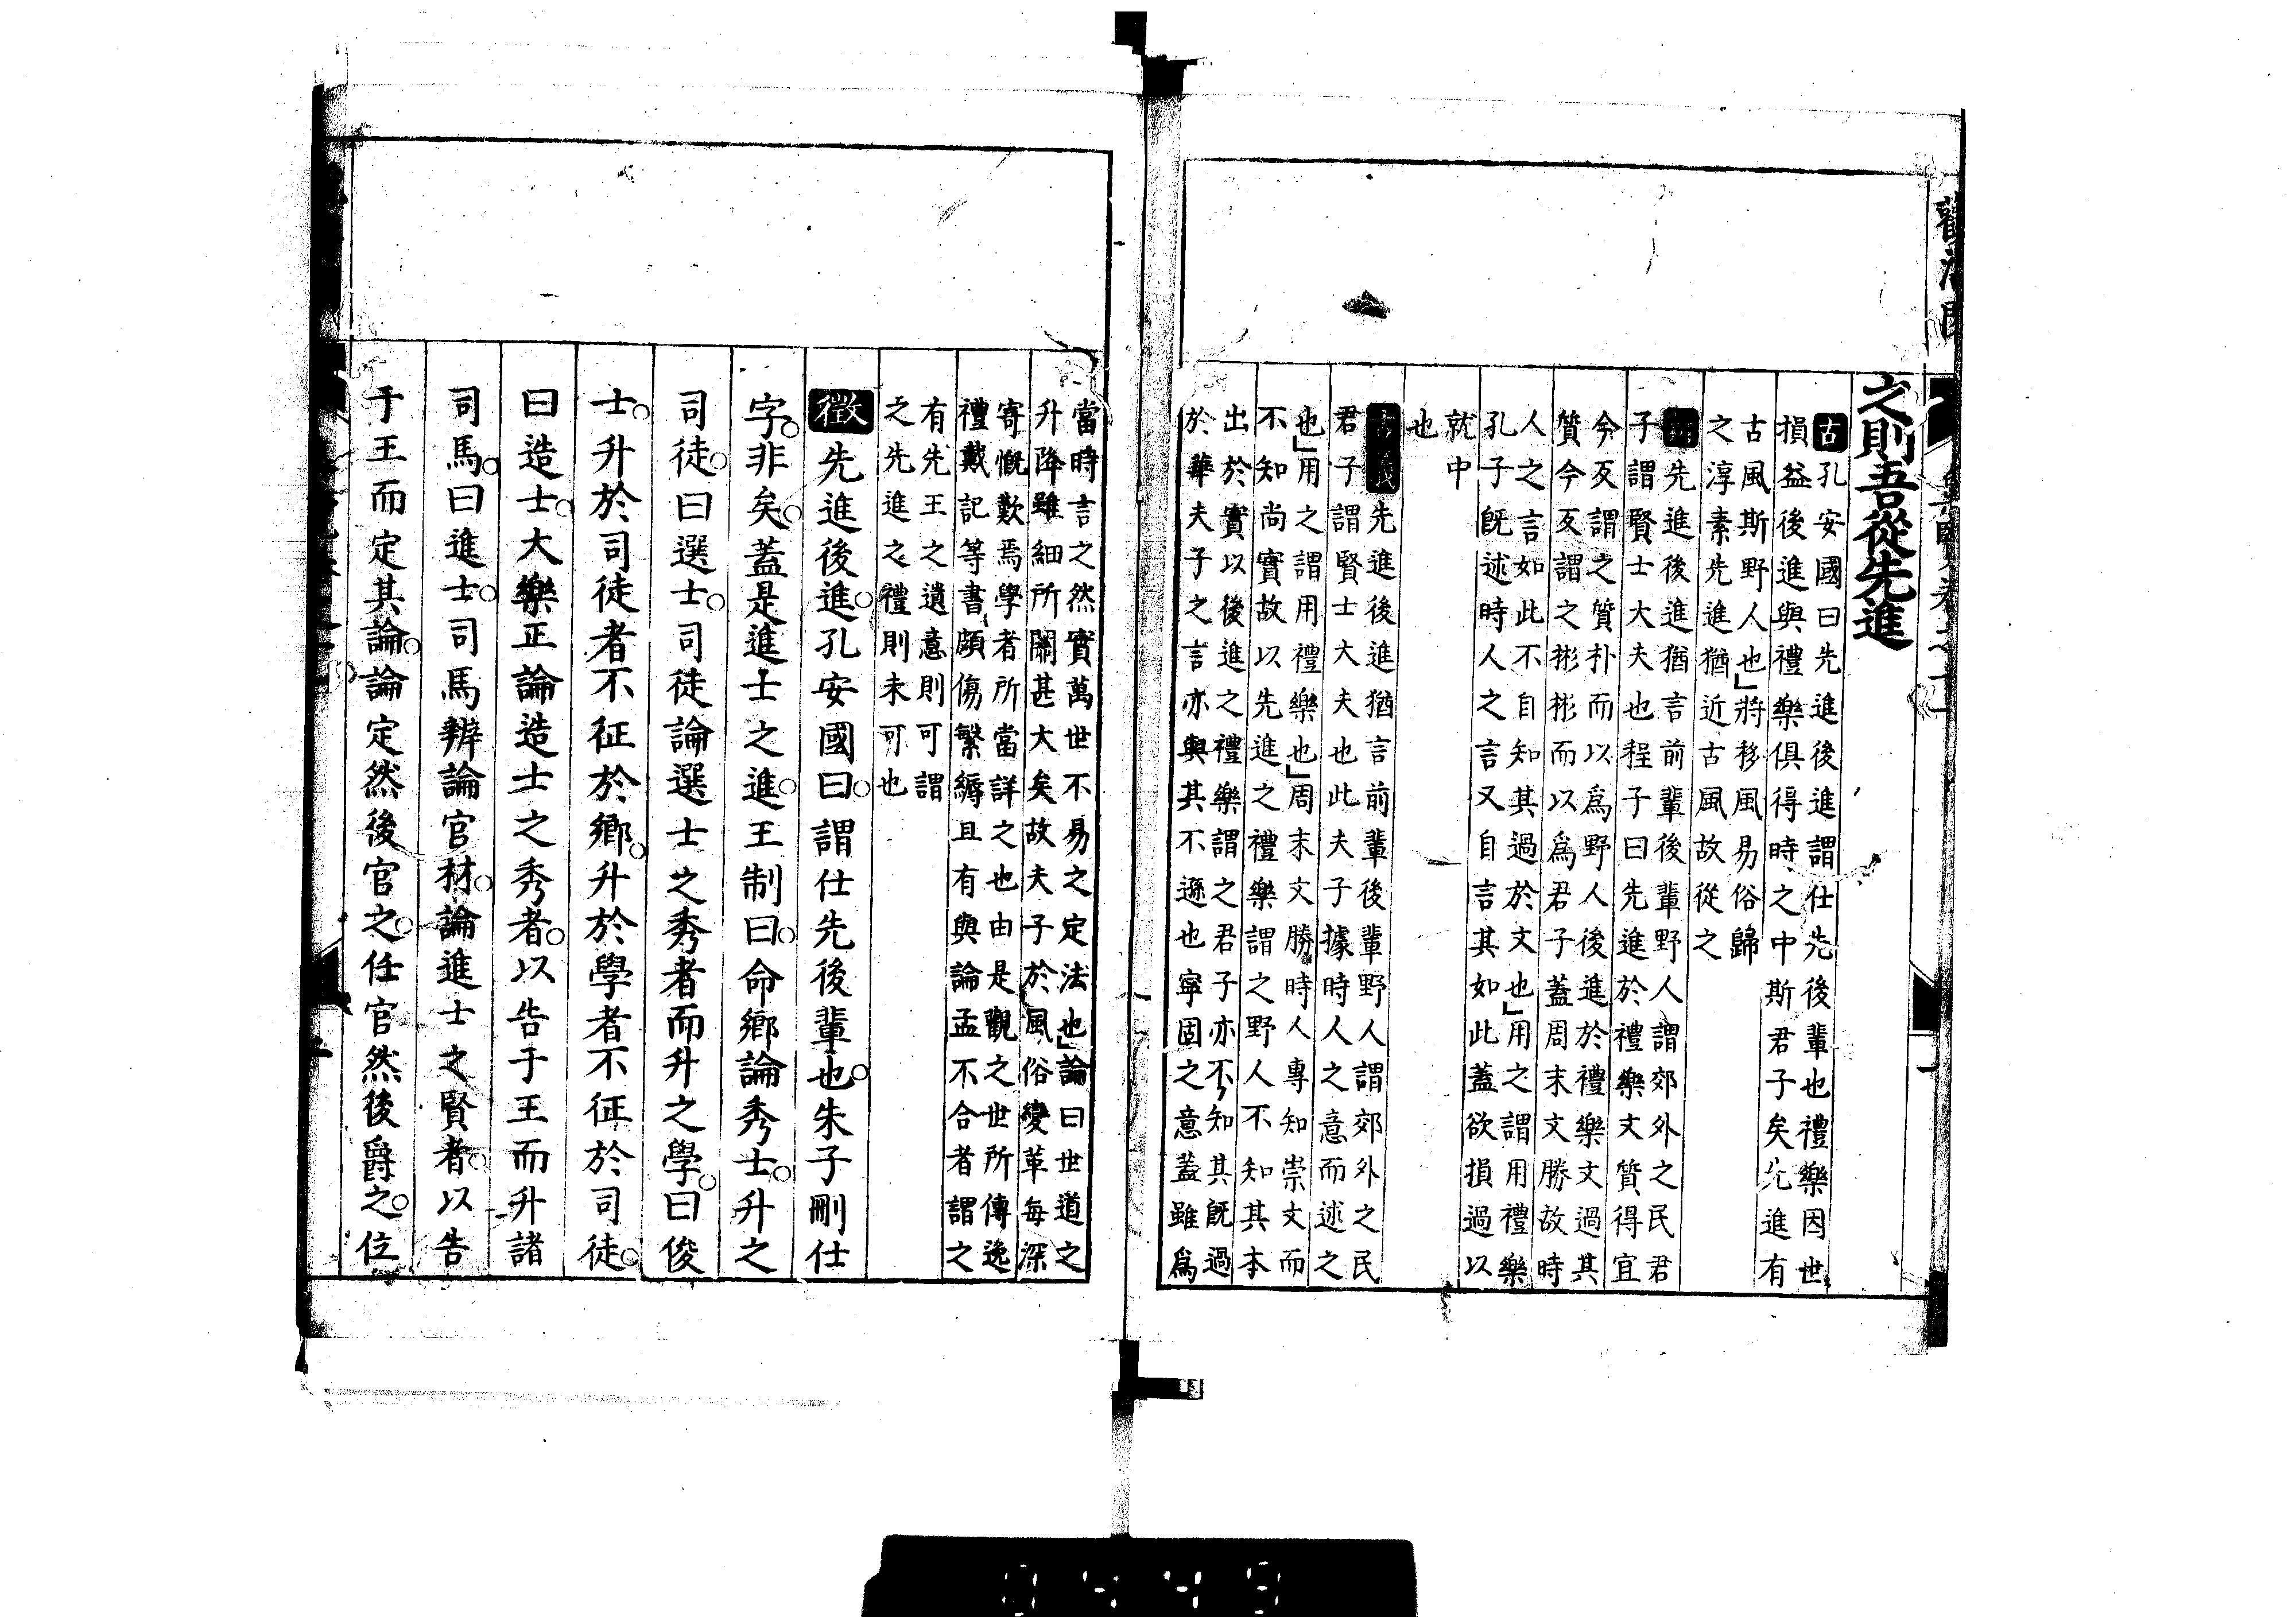 之則吾從先進
古孔安國曰先進後進謂仕先後輩也禮樂因世
損益後進與禮樂俱得時之中斯君子矣先進有
古風斯野人也」將移風易俗歸
之淳素先進猶近古風故從之
先進後進猶言前輩後輩野人謂郊外之民君
子謂賢士大夫也程子曰先進於禮樂文質得宜
今反謂之質朴而以爲野人後進於禮樂文過其
質今反謂之彬彬而以爲君子蓋周末文勝故時
人之言如此不自知其過於文也」用之謂用禮樂
孔子既述時人之言又自言其如此蓋欲損過以
就中
也
古義先進後進猶言前輩後輩野人謂郊外之民
君子謂賢士大夫也此夫子據時人之意而述之
也」用之謂用禮樂也」周末文勝時人專知崇文而
不知尚實故以先進之禮樂謂之野人不知其本
出於實以後進之禮樂謂之君子亦不知其既過
於華夫子之言亦與其不遜也寧固之意蓋雖爲
當時言之然實萬世不易之定法也」論曰世道之
升降雖細所關甚大矣故夫子於風俗變革每深
寄慨歎焉學者所當詳之也由是觀之世所傳逸
禮戴記等書頗傷繁縟且有與論孟不合者謂之
有先王之遺意則可謂
之先進之禮則未可也
徵先進後進孔安國曰謂仕先後輩也朱子刪仕
字非矣蓋是進士之進王制曰命鄉論秀士升之
司徒曰選士司徒論選士之秀者而升之學曰俊
士升於司徒者不征於鄉升於學者不征於司徒
曰造士大樂正論造士之秀者以告于王而升諸
司馬曰進士司馬辨論官材論進士之賢者以告
于王而定其論論定然後官之任官然後爵之位
0449